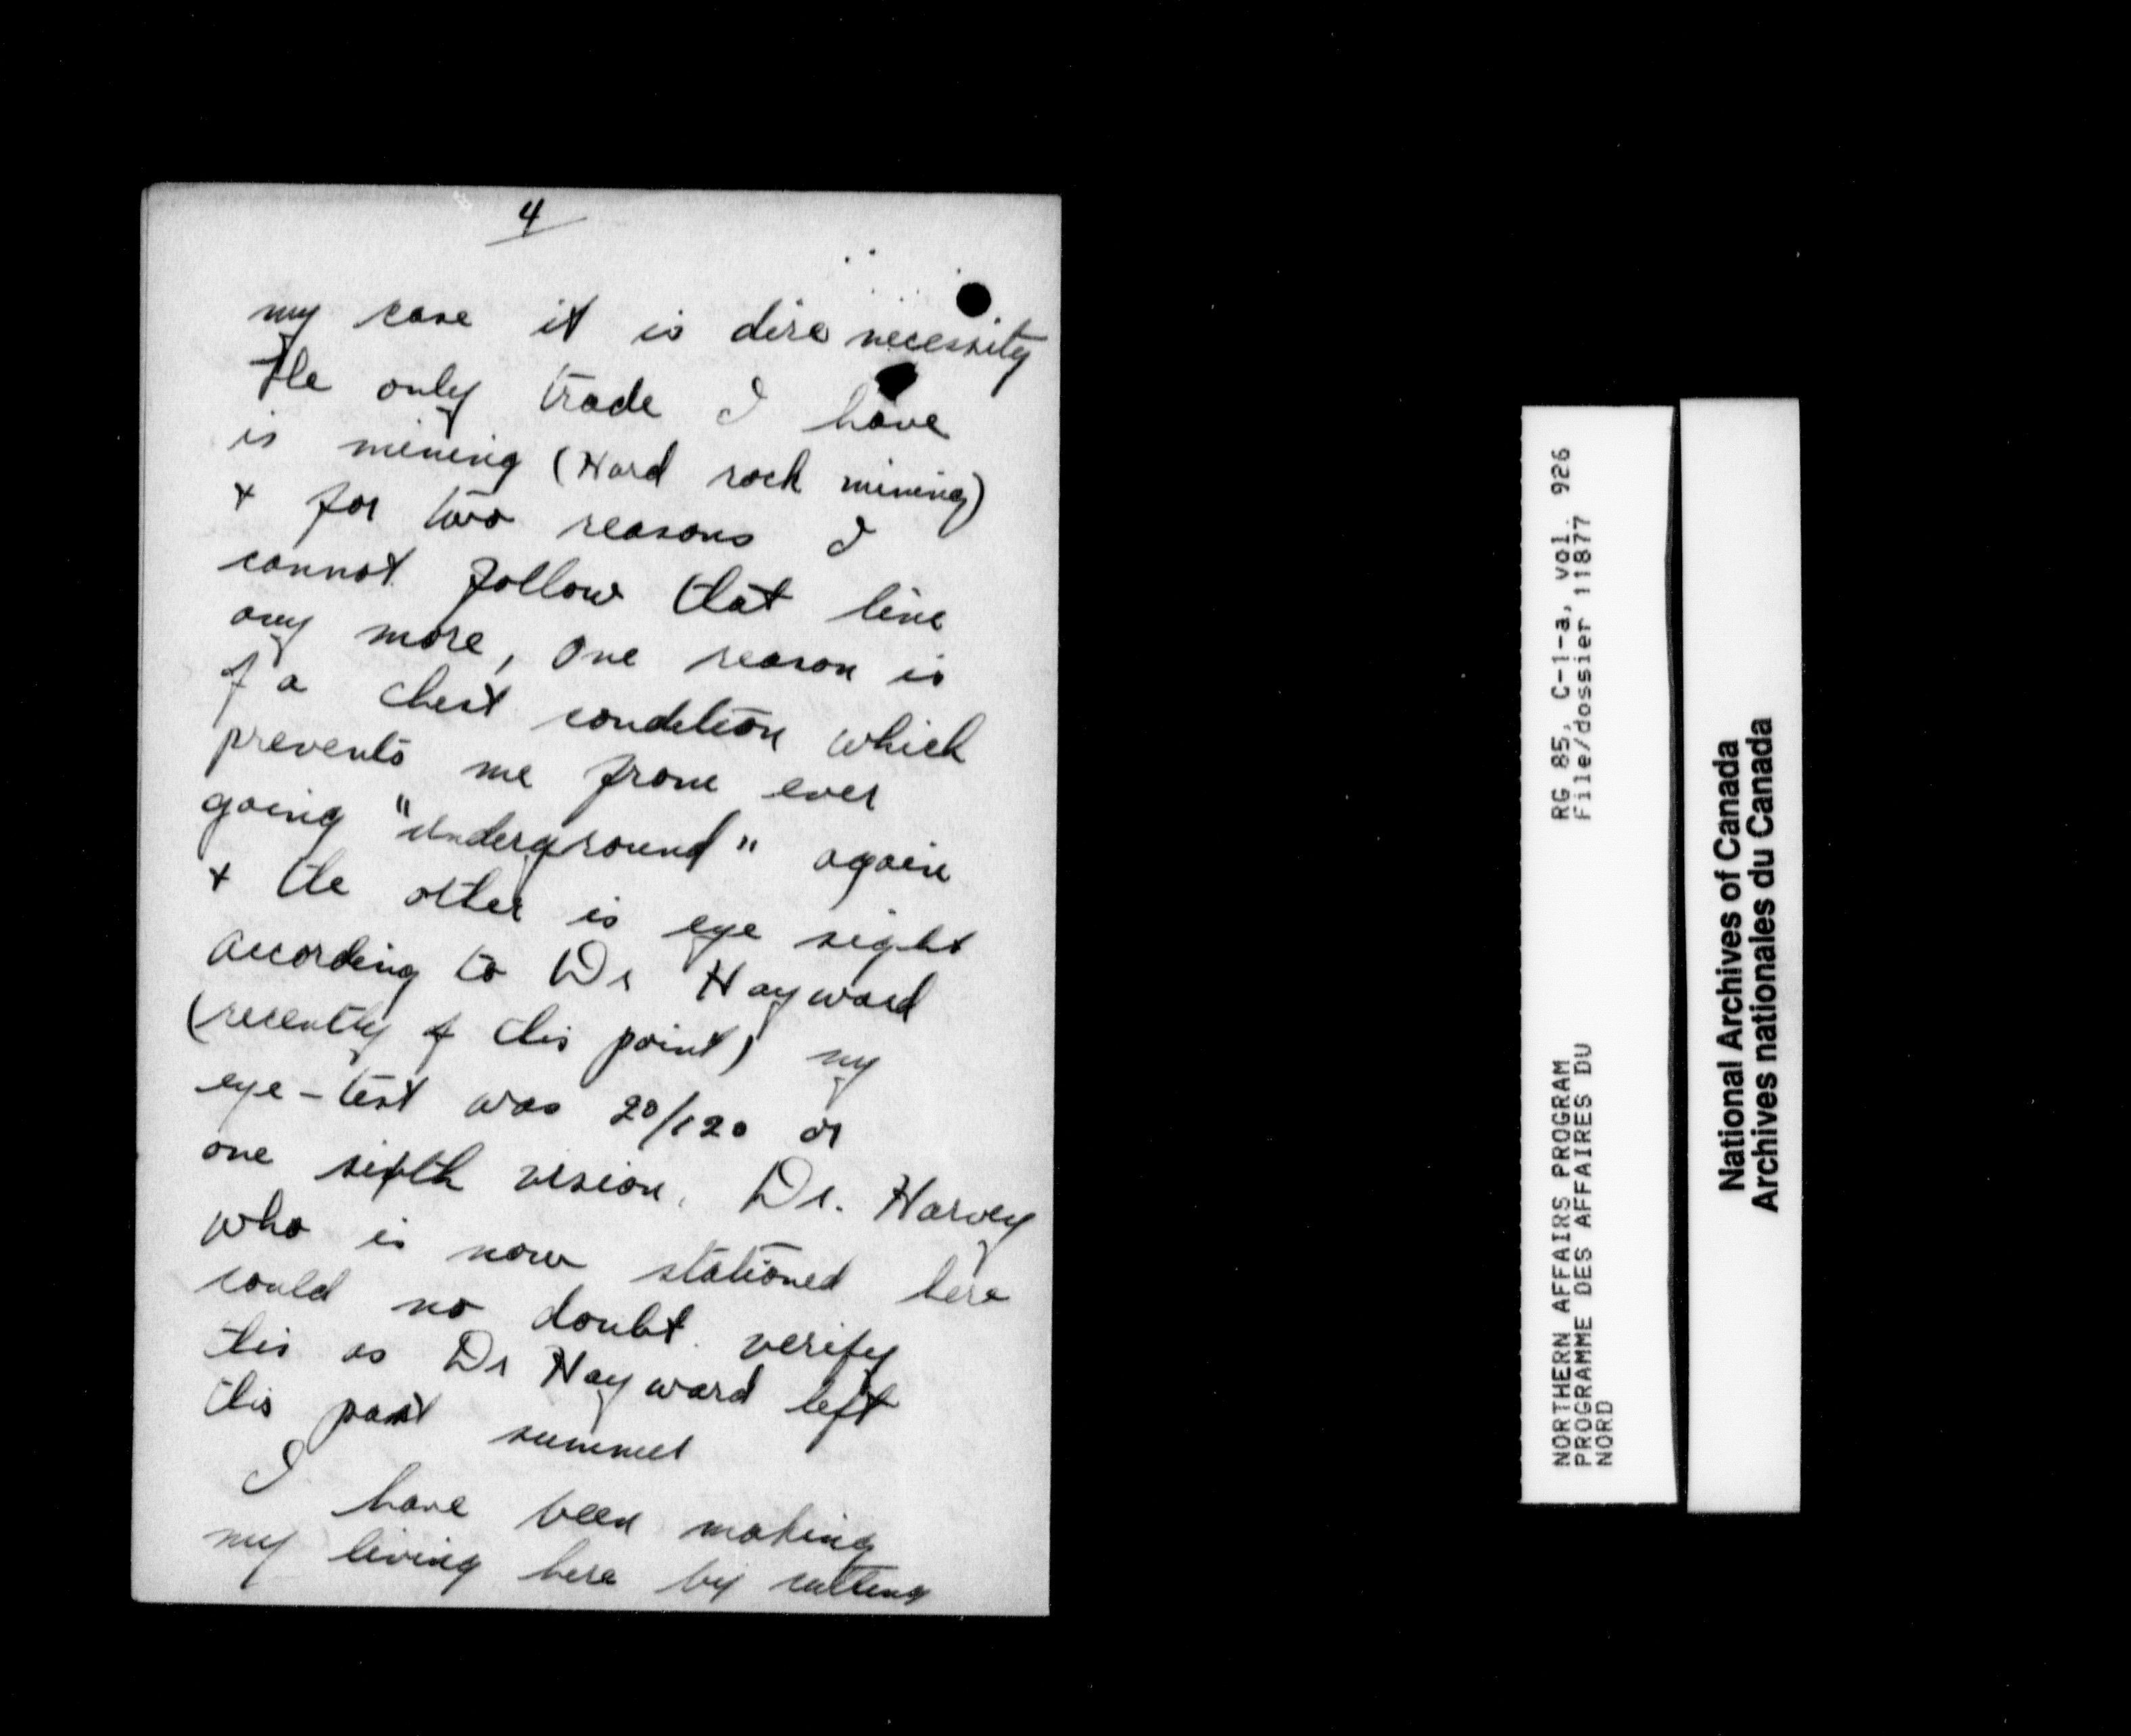 4
my case it is dire necessity
The only trade I have
is mining (Hard rock mining)
+ for two reasons I
cannot follow that line
any more, One reason is
of a chest condition which
prevents me from ever
going "underground" again
+ the other is eye sight
According to Dr Hayward
(recently of this point) my
eye-test was 20/120 or
one sixth vision. Dr. Harvey
who is now stationed here
could no doubt verify
this as Dr Hayward left
this past summer
I have been making
my living here by cutting
RG 85, C-1-a, vol. 926
File/dossier 11877
NORTHERN AFFAIRS PROGRAM
PROGRAMME DES AFFAIRES DU
NORD
National Archives of Canada
Archives nationales du Canada